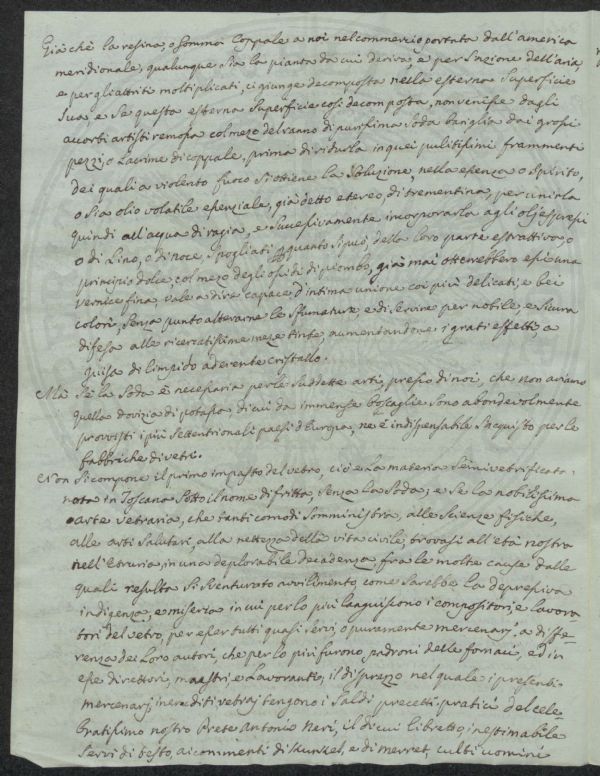 Già chè la resina, o Gomma Coppale a noi nel commercio portata dall'america
meridionale, qualunque sia la pianta da cui deriva, e per l'azione dell'aria,
e per gli attriti moltiplicati, ci giunge decomposta nella esterna superficie
sua, e se questa esterna superficie così decomposta, non venisse dagli
accorti artisti remossa col mezo del ranno di purissima soda bariglia dai grossi
pezzi, o Lacrime di coppale, prima di ridurla in quei pulitissimi frammenti
dei quali a violento fuoco si ottiene la soluzione, nella essenza o spirito,
o sia olio volatile essenziale, già detto etereo di trementina, per unirla
quindi all'acqua di ragia, e successivamente incorporarla agli olj espressi
o di Lino, o di noce, spogliati quanto si può, della loro parte estrattiva, o
principio dolce, col mezo degli ossidi di piombo, già mai otterrebbero essi una
vernice fina, vale a dire capace d'intima unione coi più delicati, e bei
colori, senza punto alterarne le sfumature, e di servire per nobile, e sicura
difesa alle ricercatissime meze tinte, aumentandone i grati effetti, a
guisa di limpido aderente cristallo.
Ma se la Soda è necessaria per le suddette arti, presso di noi, che non aviamo
quella dovizia di potassa, di cui da immense boscaglie sono abondevolmente
provvisti i più settentrionali paesi d'Europa, ne è indispensabile l'acquisto per le
fabbriche di vetri.
Non si compone il primo impasto del vetro, ciò è la materia semivetrificata
nota in Toscana sotto il nome di fritta, senza la Soda; e se la nobilissima
arte vetraria, che tanti comodi somministra, alle scienze fisiche,
alle arti salutari, alla nettezza della vita civile, trovasi all'età nostra
nell'Etruria, in una deplorabile decadenza, fra le molte cause dalle
quali resulta sì sventurato avvilimento, come sarebbe la depressiva
indigenza, e miseria in cui per lo più languiscono i compositori, e lavora-
tori del vetro, per esser tutti quasi servi, o puramente mercenarj, a diffe-
renza dei Loro autori, che per lo più furono, padroni delle fornaci, ed in
esse direttori, maestri, e Lavoranti; il disprezzo nel quale i presenti
mercenarj, ineruditi vetraj tengono i saldi precetti pratici del cele-
bratissimo nostro Prete Antonio Neri, il di cui libretto, inestimabile
servì di testo, ai commenti di Kunkel, e di merret, culti uomini